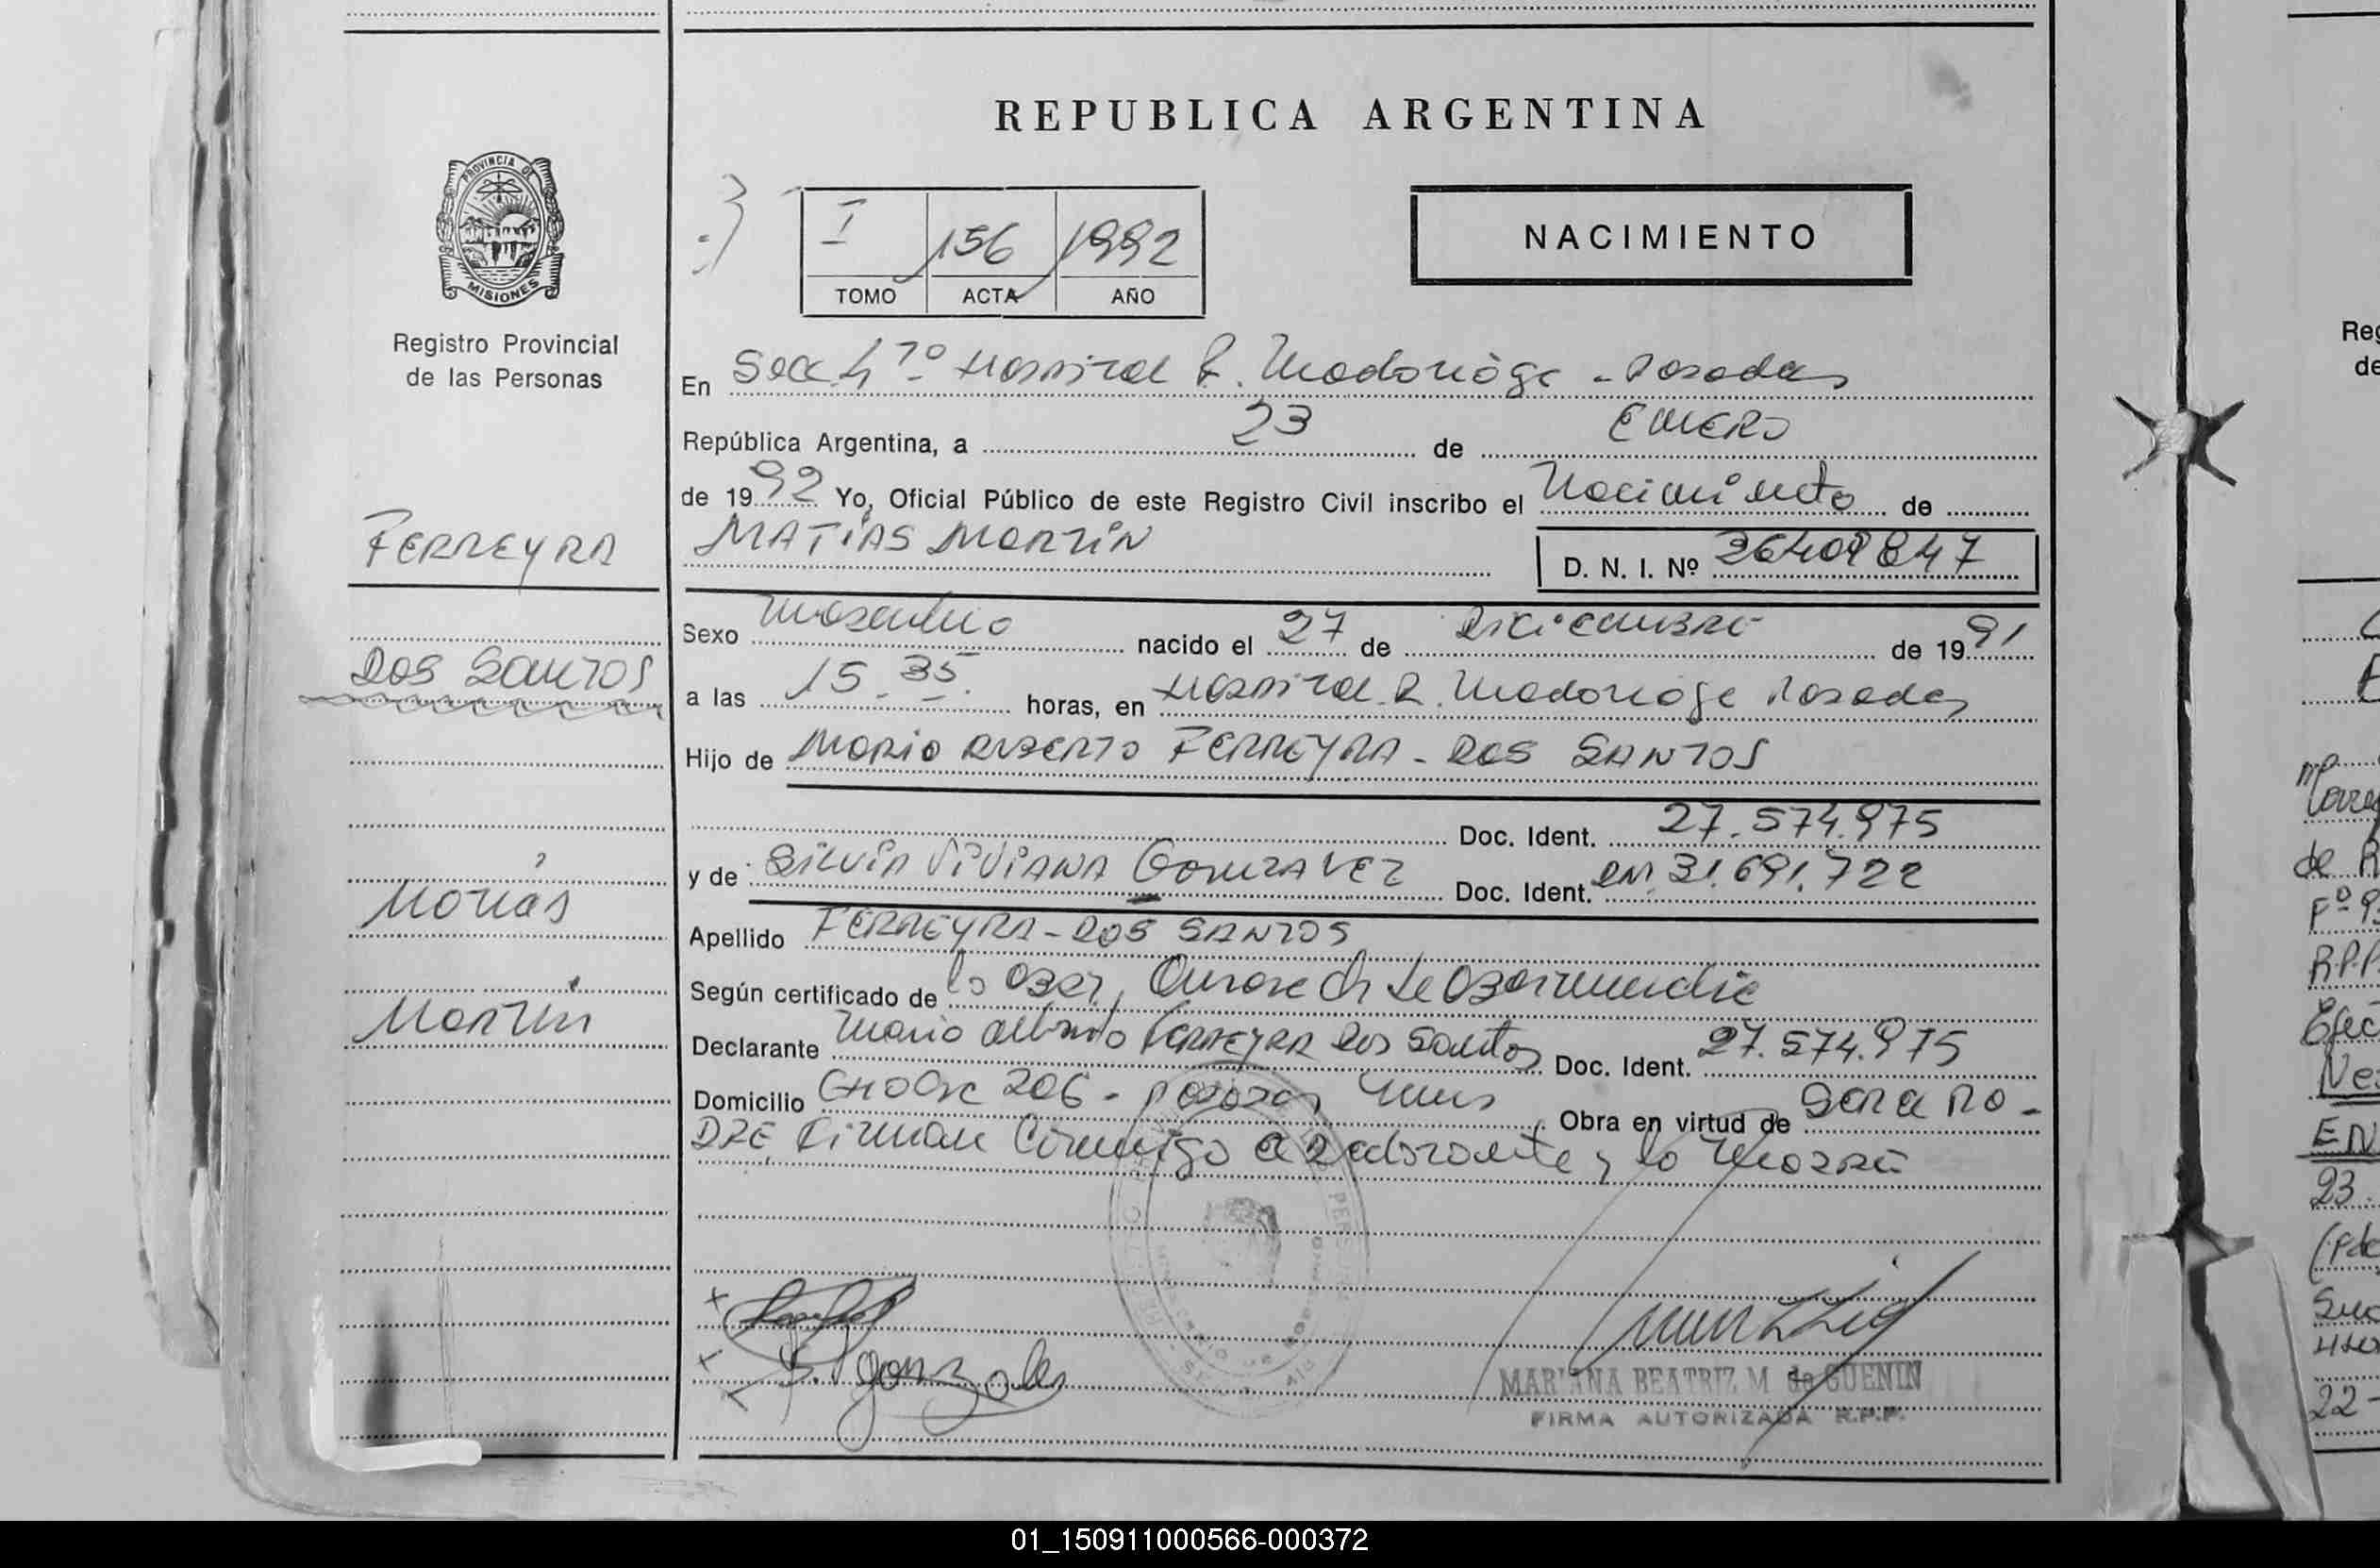 REPUBLICA ARGENTINA
PROVINCIA DE
MISIONES
Registro Provincial
de las Personas
I 156 1992
TOMO ACTA AÑO
NACIMIENTO
En Secc. 4 7º Hospital R. Madariaga - Posadas
República Argentina, a 23 de Enero
de 1992 Yo, Oficial Público de este Registro Civil inscribo el Nacimiento de
MATIAS MARTIN
D. N. I. Nº 36409847
FERREYRA
DOS SANTOS
Matias
Martin
Sexo Masculino nacido el 27 de Diciembre de 1991
a las 15.35. horas, en Hospital R. Madariaga Posadas
Hijo de MARIO ALBERTO FERREYRA - DOS SANTOS
Doc. Ident. 27.574.975
y de SILVIA VIVIANA GONZALEZ Doc. Ident. DNI. 31.691.722
Apellido FERREYRA - DOS SANTOS
Según certificado de la Obst,
Declarante Mario Alberto Ferreyra Dos Santos Doc. Ident. 27.574.975
Domicilio 206 - Posadas Mnes Obra en virtud de ser el PA-
DRE, Firman Conmigo el Declarante y la Madre
S. Gonzales
MARIANA BEATRIZ M de GUENIN
FIRMA AUTORIZADA R.P.P.
Reg
de
de R
Fº 9
R.P.P
EN
23
22-
01_150911000566-000372